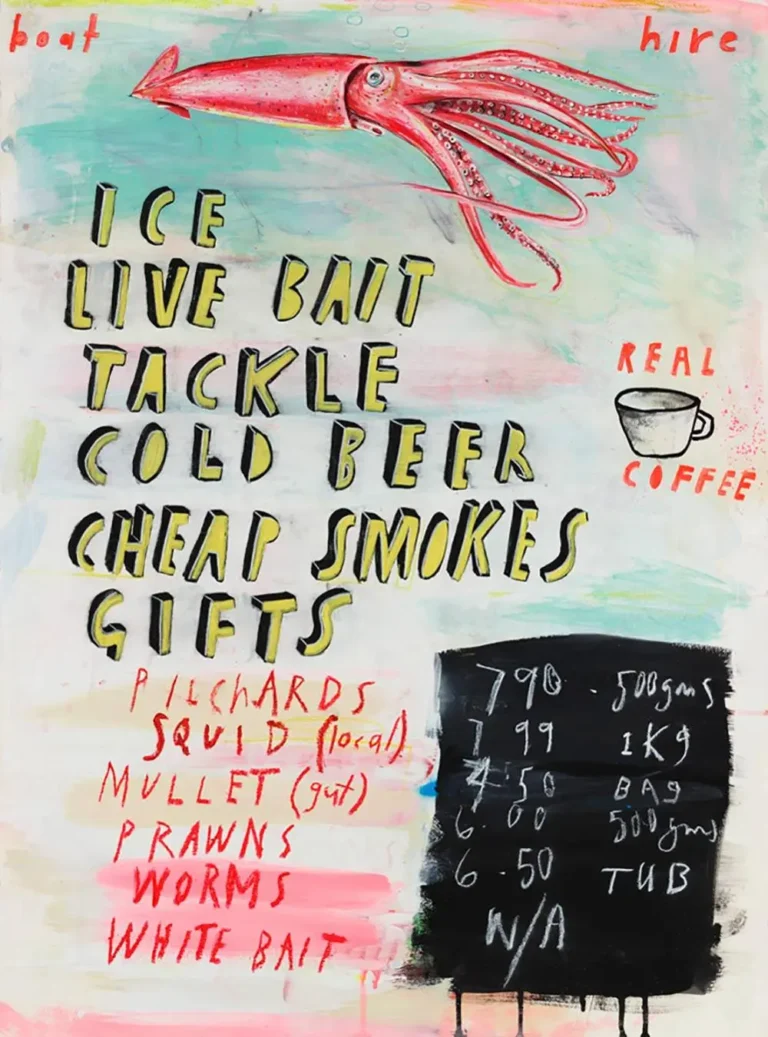 boat hire
ICE
LIVE BAIT
TACKLE
REAL
COLD BEER
COFFEE
CHEAP SMOKES
GIFTS
PILCHARDS 790 . 500gms
SQUID (local) 7 99 1Kg
MULLET (gut) 4.50 BAg
PRAWNS 6.00 500gms
WORMS 6.50 TUB
WHITE BAIT N/A